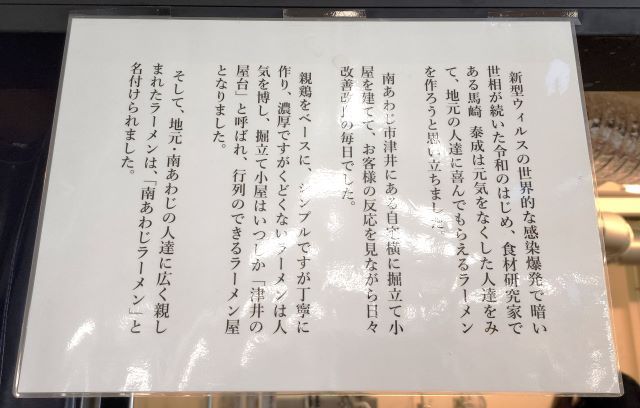 新型ウィルスの世界的な感染爆発で暗い
世相が続いた令和のはじめ、食材研究家で
ある馬崎 泰成は元気をなくした人達をみ
て、地元の人達に喜んでもらえるラーメン
を作ろうと思い立ちました。
南あわじ市津井にある自宅横に掘立て小
屋を建てて、お客様の反応を見ながら日々
改善改良の毎日でした。
親鶏をベースに、シンプルですが丁寧に
作り、濃厚ですがくどくないラーメンは人
気を博し、掘立て小屋はいつしか「津井の
屋台」と呼ばれ、行列のできるラーメン屋
となりました。
そして、地元・南あわじの人達に広く親し
まれたラーメンは、「南あわじラーメン」と
名付けられました。